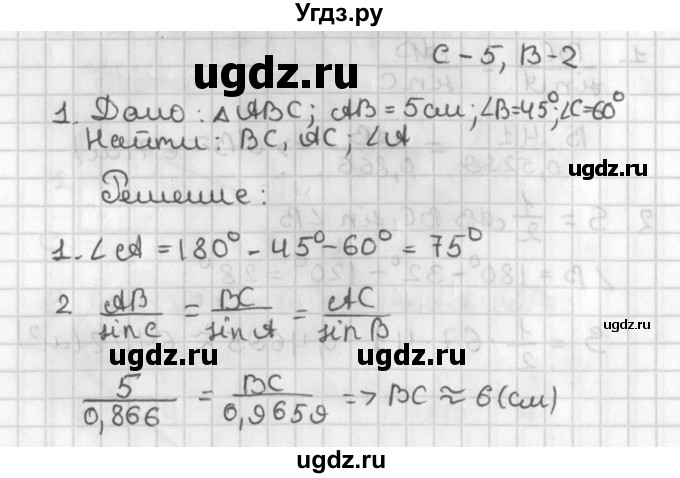 Угдз.ру
С - 5, В - 2
ugdz.ru
1. Дано: △ABC; AB = 5 см; ∠B=45°; ∠C=60°
Найти: BC, AC; ∠A
ugdz.ru
Решение:
1. ∠A = 180° - 45° - 60° = 75°
2 AB/sin C = BC/sin A = AC/sin B
ugdz.ru ugdz.ru
5/0,866 = BC/0,9659 => BC ≈ 6 (см)
ugdz.ru
ugdz.ru